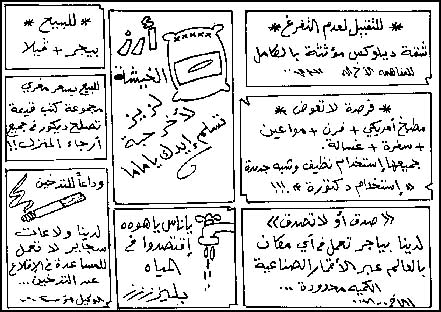 * للتقبيل لعدم التفرغ *
شقة ديلوكس مؤثثة بالكامل
* فرصة لاتعوض *
مطبخ أمريكي + فرن + مواعين
+ سفرة + غسالة.
جميعها إستخدام نظيف وشبه جديدة
« إستخدام دكتورة » !!!
« صدق أو لا تصدق »
لدينا بياجر تعمل في أي مكان
بالعالم عبر الأقمار الصناعية
الكمية محدودة ...
أرز
الخيشة
لزيز
لآخر حبة
تسلم إيدك ياماما
ياناس ياهووه
إقتصدوا في
المياه
بليززززز
* للبيع *
بيجر + فيلا
للبيع بسعر مغري
مجموعة كتب قيمة
تصلح ديكور في جميع
أرجاء المنزل !!
وداعاً للتدخين
لدينا ولاعات
سجاير لا تعمل
للمساعدة في الإقلاع
عند التدخين ...